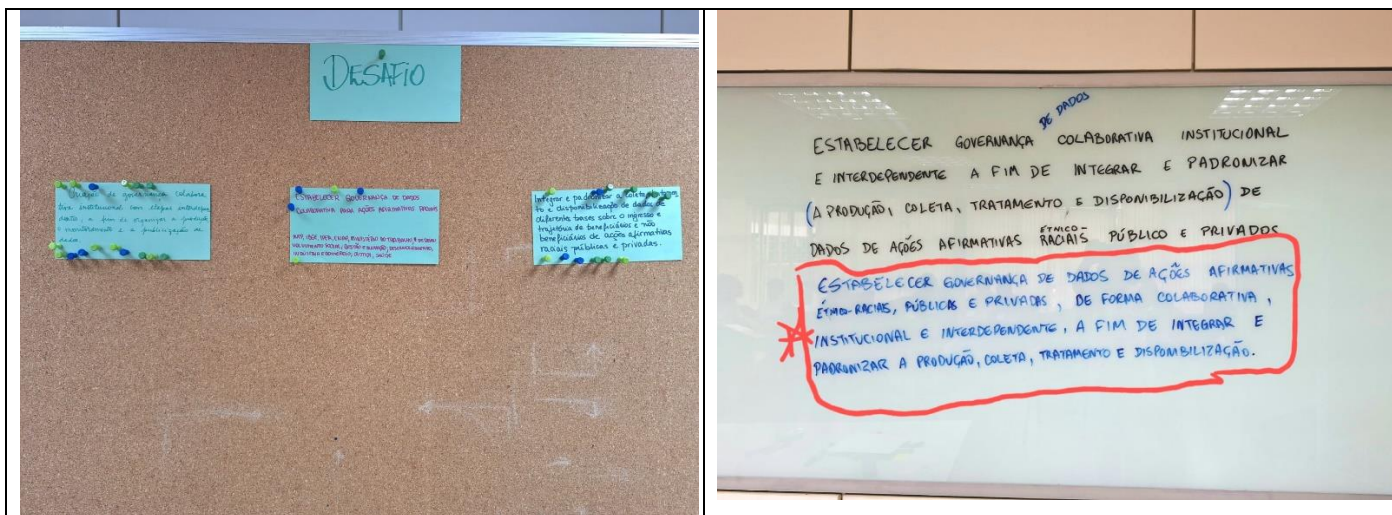 DESAFIO
de governança colabora
tiva institucional com etapas
dente, a fim de
o monitoramento e a publicização de
ESTABELECER GOVERNANÇA DE DADOS
COLABORATIVA PARA AÇÕES AFIRMATIVAS
Integrar e padronizar a coleta,
to e disponibilização de dados de
diferente bases sobre o ingresso e
trajetória de beneficiários e não
beneficiários de ações afirmativas
raciais públicas e privadas.
DE DADOS
ESTABELECER GOVERNANÇA COLABORATIVA INSTITUCIONAL
E INTERDEPENDENTE A FIM DE INTEGRAR E PADRONIZAR
(A PRODUÇÃO, COLETA, TRATAMENTO E DISPONIBILIZAÇÃO) DE
ÉTNICO-
DADOS DE AÇÕES AFIRMATIVAS RACIAIS PÚBLICO E PRIVADOS
ESTABELECER GOVERNANÇA DE DADOS DE AÇÕES AFIRMATIVAS
ÉTNICO-RACIAIS, PÚBLICAS E PRIVADAS, DE FORMA COLABORATIVA,
INSTITUCIONAL E INTERDEPENDENTE, A FIM DE INTEGRAR E
PADRONIZAR A PRODUÇÃO, COLETA, TRATAMENTO E DISPONIBILIZAÇÃO.